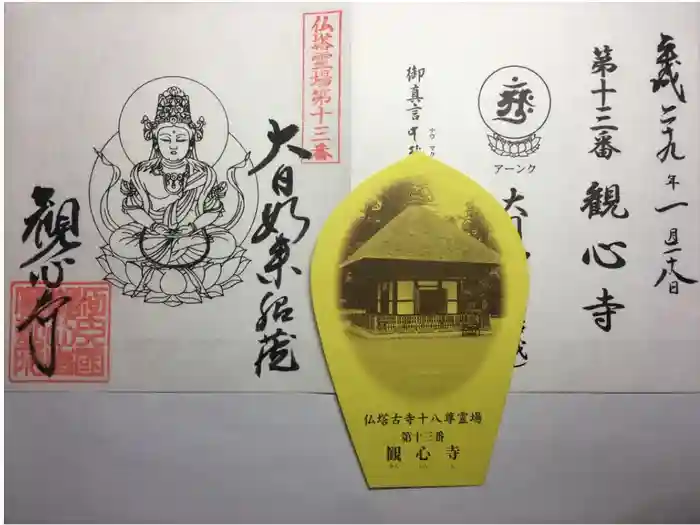 平成二十九年一月二十八日
第十三番 観心寺
アーンク
御真言
仏塔霊場第十三番
大日如来
観心寺
仏塔古寺十八尊霊場
第十三番
観心寺